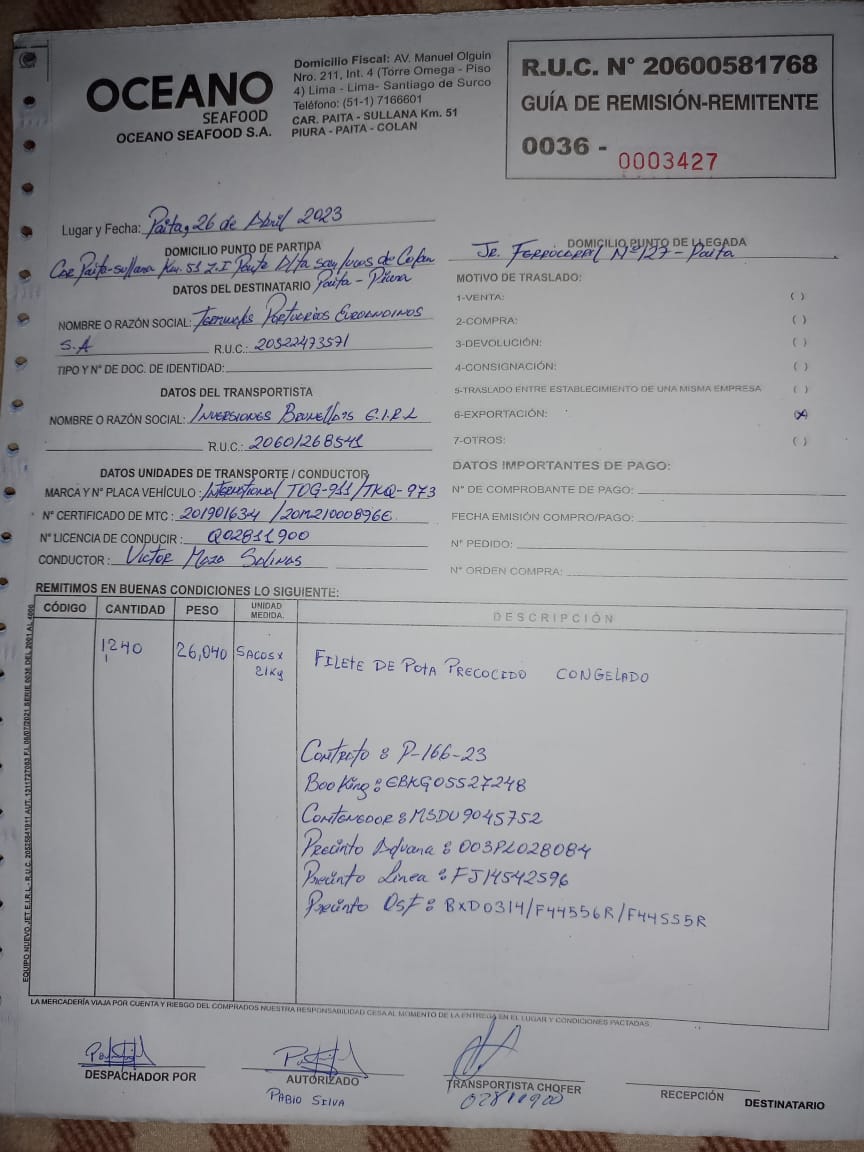 OCEANO
SEAFOOD
OCEANO SEAFOOD S.A.
Domicilio Fiscal: AV. Manuel Olguin
Nro. 211, Int. 4 (Torre Omega - Piso
4) Lima - Lima- Santiago de Surco
Teléfono: (51-1) 7166601
CAR. PAITA - SULLANA Km. 51
PIURA - PAITA - COLAN
R.U.C. N° 20600581768
GUÍA DE REMISIÓN-REMITENTE
0036 - 0003427
Lugar y Fecha: Paita, 26 de Abril 2023
DOMICILIO PUNTO DE PARTIDA
Car Paita-sullana Km. 51 Z.I Parte Alta san lucas de Colan
Paita - Piura
DOMICILIO PUNTO DE LLEGADA
Jr. Ferrocarril N° 127 - Paita
DATOS DEL DESTINATARIO
NOMBRE O RAZÓN SOCIAL: Terminales Portuarios Euroandinos
S.A R.U.C.: 20522473571
TIPO Y N° DE DOC. DE IDENTIDAD:
DATOS DEL TRANSPORTISTA
NOMBRE O RAZÓN SOCIAL: Inversiones E.I.R.L
R.U.C.: 20601268541
DATOS UNIDADES DE TRANSPORTE / CONDUCTOR
MARCA Y N° PLACA VEHÍCULO: International TOG-911/TKQ-973
N° CERTIFICADO DE MTC: 201901634 / 20M21000896E
N° LICENCIA DE CONDUCIR: Q02811900
CONDUCTOR: Victor Maza Salinas
MOTIVO DE TRASLADO:
1-VENTA: ( )
2-COMPRA: ( )
3-DEVOLUCIÓN: ( )
4-CONSIGNACIÓN: ( )
5-TRASLADO ENTRE ESTABLECIMIENTO DE UNA MISMA EMPRESA ( )
6-EXPORTACIÓN: (X)
7-OTROS: ( )
DATOS IMPORTANTES DE PAGO:
N° DE COMPROBANTE DE PAGO:
FECHA EMISIÓN COMPRO/PAGO:
N° PEDIDO:
N° ORDEN COMPRA:
REMITIMOS EN BUENAS CONDICIONES LO SIGUIENTE:
CÓDIGO CANTIDAD PESO UNIDAD MEDIDA. DESCRIPCIÓN
1240 26,040 SACOS x 21Kg FILETE DE POTA PRECOCIDO CONGELADO
Contrato : P-166-23
Booking : EBKG05527248
Contenedor : MSDU9045752
Precinto Aduana : 003PL028084
Precinto Linea : FJ14542596
Precinto Osf : BXD0314/F44556R/F44555R
LA MERCADERÍA VIAJA POR CUENTA Y RIESGO DEL COMPRADOS NUESTRA RESPONSABILIDAD CESA AL MOMENTO DE LA ENTREGA EN EL LUGAR Y CONDICIONES PACTADAS.
DESPACHADOR POR
AUTORIZADO
PABIO SILVA
TRANSPORTISTA CHOFER
02811900
RECEPCIÓN
DESTINATARIO